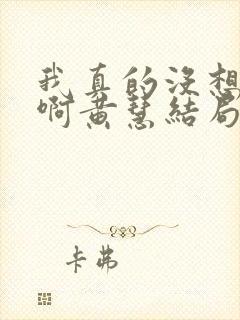 我真的没想
啊黄慧结局
卡弗